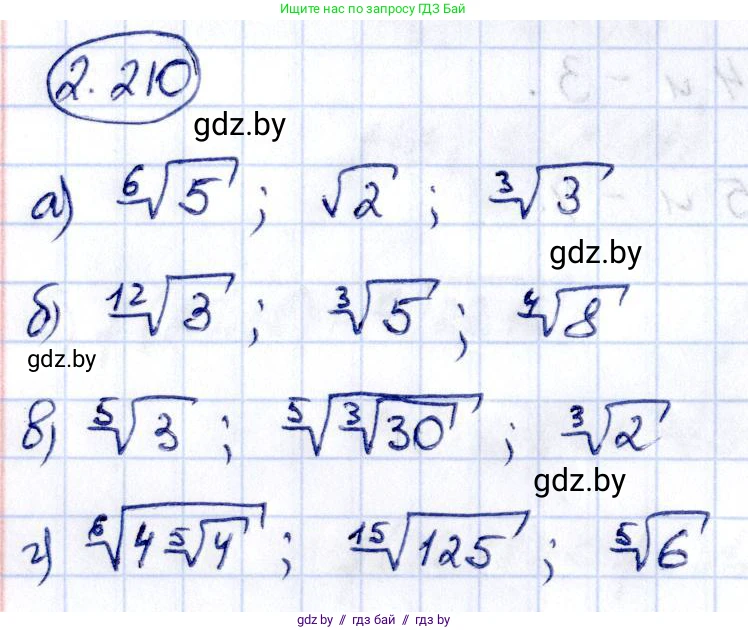 Ищите нас в поиске по запросу ГДЗ Бай
2.210
gdz.by
а) ⁶√5 ; √2 ; ³√3
gdz.by
б) ¹²√3 ; ³√5 ; ⁴√8
gdz.by
в) ⁵√3 ; ⁵√(³√30) ; ³√2
gdz.by
г) ⁶√(4 ⁵√4) ; ¹⁵√125 ; ⁵√6
gdz.by // гдз бай // гдз by